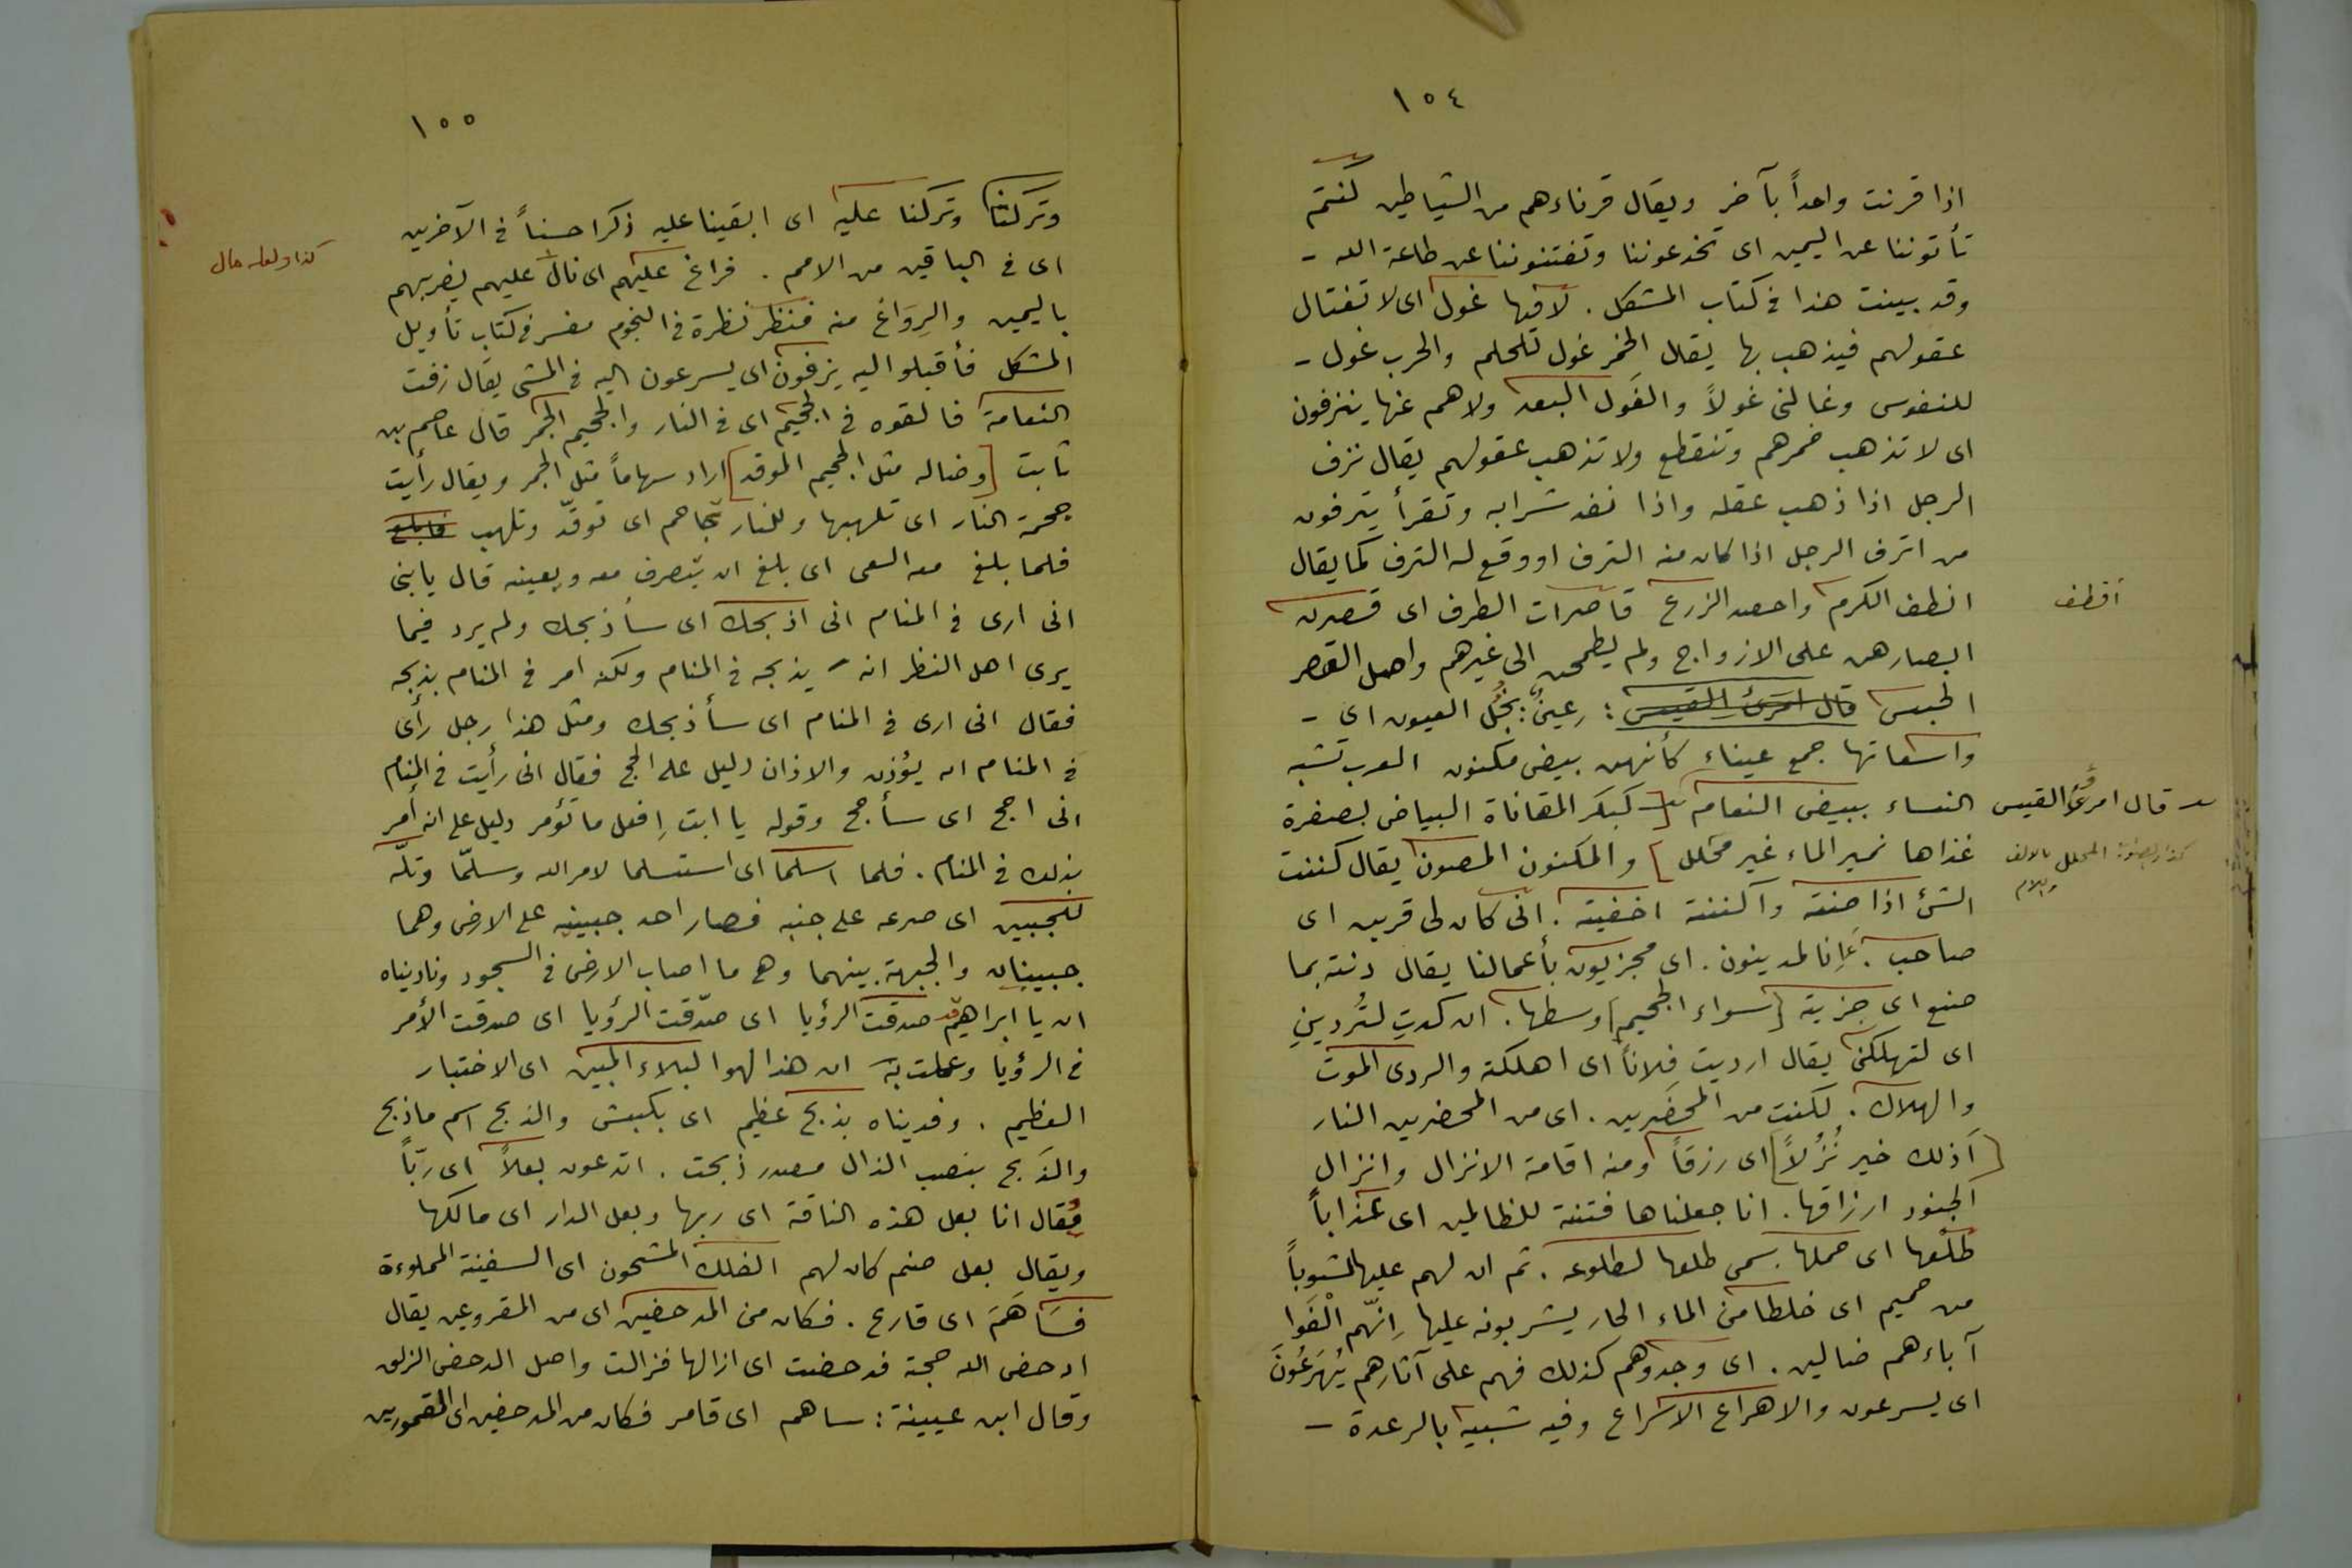 ١٥٤
اذا قرنت واحداً بآخر ويقال قرناءهم من الشياطين كنتم
تأتوننا عن اليمين اى تخدعوننا وتفتنوننا عن طاعة الله -
وقد بينت هذا فى كتاب المشكل . لا فيها غول اى لا تغتال
عقولهم فيذهب بها يقال الخمر غول للحلم والحرب غول -
للنفوس وغالنى غولاً والغَول البعد ولا هم عنها ينزفون
اى لا تذهب خمرهم وتنقطع ولا تذهب عقولهم يقال نزف
الرجل اذا ذهب عقله واذا نفد شرابه وتقرأ ينزفون
من اترف الرجل اذا كان منه الترف او وقع له الترف كما يقال
اقطف
انطف الكرم واحصد الزرع قاصرات الطرف اى قصرن
ابصارهن على الازواج ولم يطمحن الى غيرهم واصل القصر
الحبس قال امرئ القيس : عِينٌ : نُجُل العيون اى -
واسعاتها جمع عيناء كأنهن بيض مكنون العرب تشبه
النساء ببيض النعام [ كبكر المقاناة البياض بصفرة
قال امرؤ القيس
غذاها نمير الماء غير محلل ] والمكنون المصون يقال كننت
كذا المحلل بالالف واللام
الشئ اذا صنته واكننته اخفيته . انى كان لى قرين اى
صاحب . ءَاِنا لمدينون . اى مجزيون بأعمالنا يقال دنته بما
صنع اى جزيته [ سواء الجحيم ] وسطها . ان كدتِ لتُردينِ
اى لتهلكنى يقال ارديت فلاناً اى اهلكته والردى الموت
والهلاك . لكنت من المحضَرين . اى من المحضرين النار
[ أذلك خير نُزُلاً ] اى رزقاً ومنه اقامة الانزال وانزال
الجنود ارزاقها . انا جعلناها فتنة للظالمين اى عذاباً
طلْعها اى حملها سمى طلعا لطلوعه . ثم ان لهم عليها لشوباً
من حميم اى خلطا من الماء الحار يشربونه عليها اِنّهم الْفَوا
آباءهم ضالين . اى وجدوهم كذلك فهم على آثارهم يُهرَعُونَ
اى يسرعون والاهراع الاسراع وفيه شبيه بالرعدة -
١٥٥
وتركنا وتركنا عليه اى ابقينا عليه ذكرا حسناً فى الآخرين
اى فى الباقين من الامم . فراغ عليهم اى نال عليهم يضربهم
كذا ولعله مال
باليمين والرِوَاغ منه فنظر نظرة فى النجوم مفسر فى كتاب تأويل
المشكل فأقبلو اليه يزفون اى يسرعون اليه فى المشى يقال زفت
النعامة فالقوه فى الجحيم اى فى النار والجحيم الجمر قال عاصم بن
ثابت [ وضاله مثل الجحيم الموقد ] اراد سهاماً مثل الجمر ويقال رأيت
جحمة النار اى تلهبها وللنار جاحم اى توقّد وتلهب فابلغ
فلما بلغ معه السعى اى بلغ ان يتصرف معه ويعينه قال يا بنى
انى ارى فى المنام انى اذبحك اى سأذبحك ولم يرد فيما
يرى اهل النظر انه يذبحه فى المنام ولكنه امر فى المنام بذبحه
فقال انى ارى فى المنام اى سأذبحك ومثل هذا رجل رأى
فى المنام انه يؤذن والاذان دليل على الحج فقال انى رأيت فى المنام
انى احج اى سأحج وقوله يا ابت اِفعل ما تؤمر دليل على انه أمر
بذلك فى المنام . فلما اسلما اى استسلما لامر الله وسلمّا وتلّه
للجبين اى صرعه على جنبه فصار احد جبينيه على الارض وهما
جبينان والجبهة بينهما وهى ما اصاب الارض فى السجود وناديناه
ان يا ابراهيم قد صدقت الرؤيا اى صدّقت الرؤيا اى صدقت الأمر
فى الرؤيا وعملت به ان هذا لهو البلاء المبين اى الاختبار
العظيم . وفديناه بذبح عظيم اى بكبش والذبح اسم ماذبح
والذَبح بنصب الذال مصدر ذبحت . اتدعون بعلاً اى ربّاً
يُقال انا بعل هذه الناقة اى ربها وبعل الدار اى مالكها
ويقال بعل صنم كان لهم الفلك المشحون اى السفينة المملوءة
فسَاهَمَ اى قارع . فكان من المدحضين اى من المقروعين يقال
ادحض الله حجته فدحضت اى ازالها فزالت واصل الدحض الزلق
وقال ابن عيينة : ساهم اى قامر فكان من المدحضين اى المقمورين